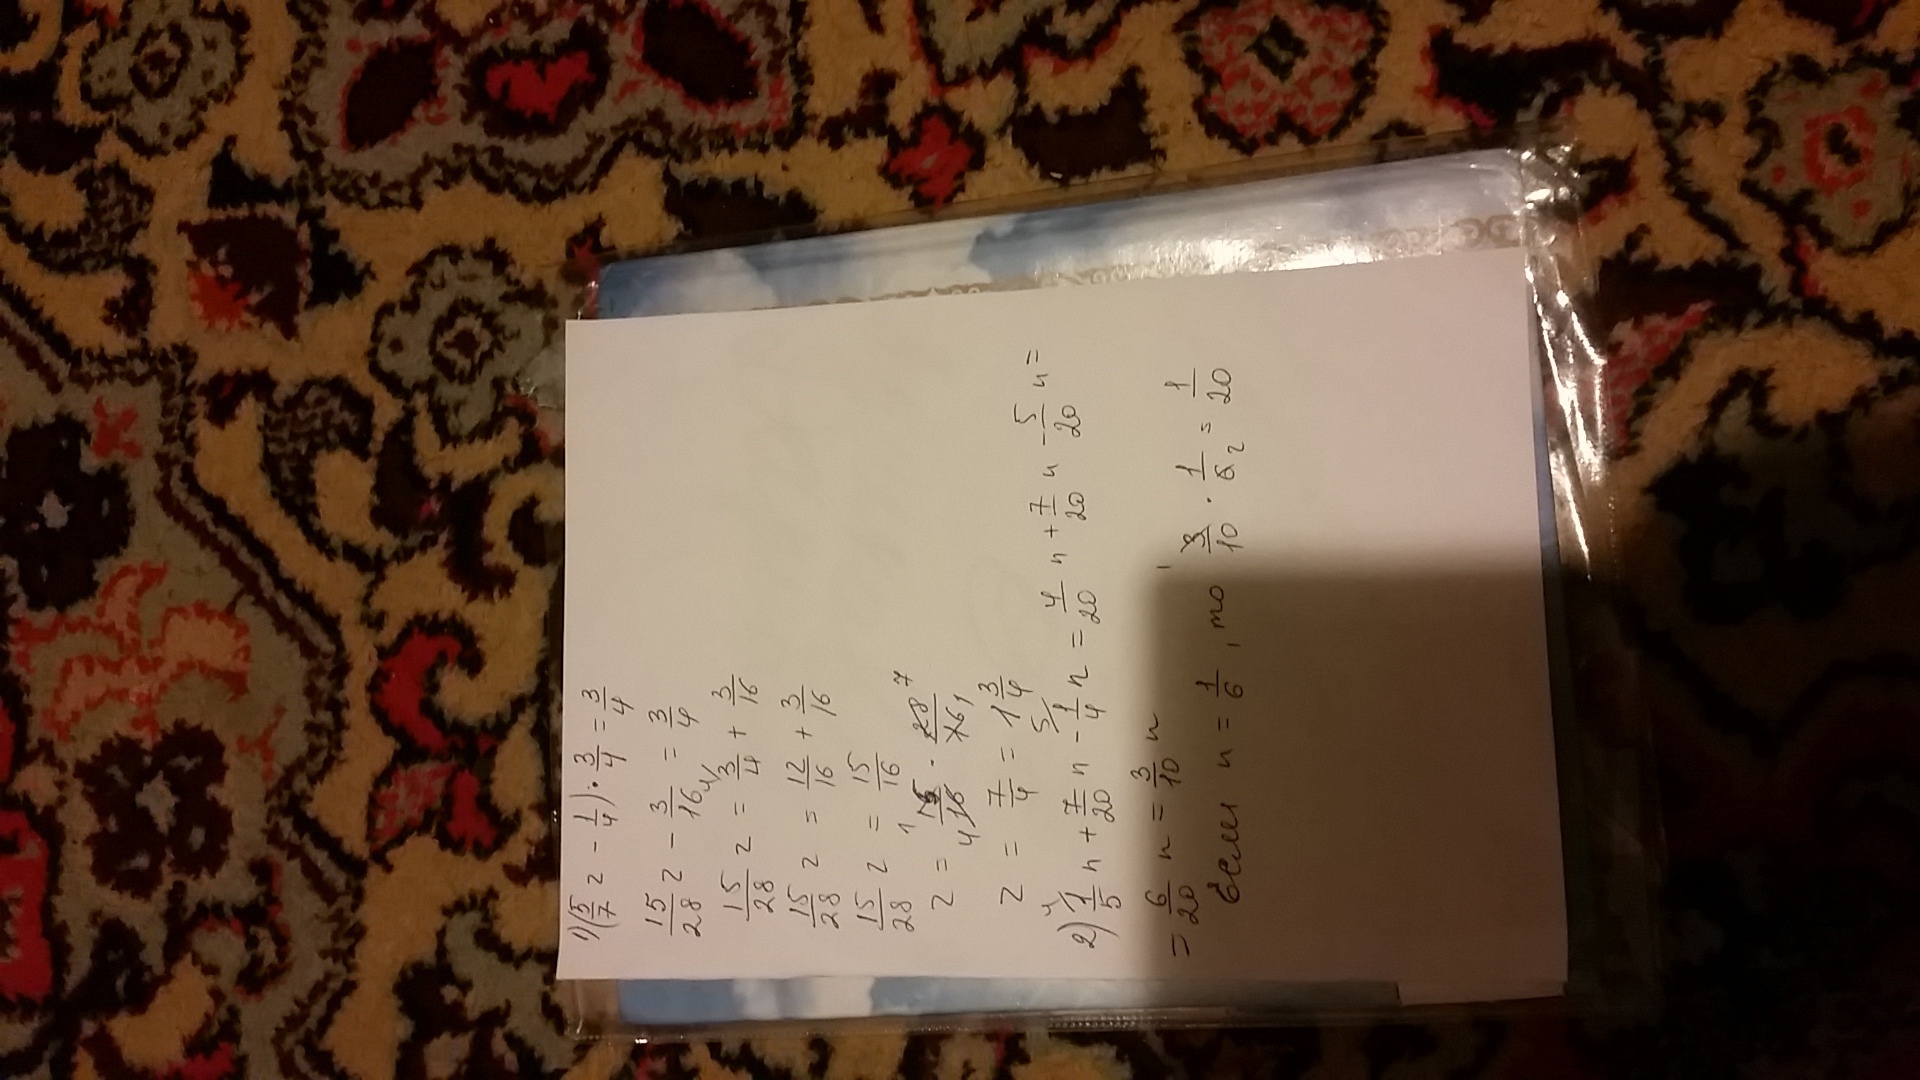 1) (5/7 z - 1/4) · 3/4 = 3/4
15/28 z - 3/16 = 3/4
15/28 z = 3/4 + 3/16
15/28 z = 12/16 + 3/16
15/28 z = 15/16
z = 15/16 · 28/15
z = 7/4 = 1 3/4
2) 1/5 n + 7/20 n - 1/4 n = 4/20 n + 7/20 n - 5/20 n =
= 6/20 n = 3/10 n
если n = 1/6, то 3/10 · 1/6 = 1/20